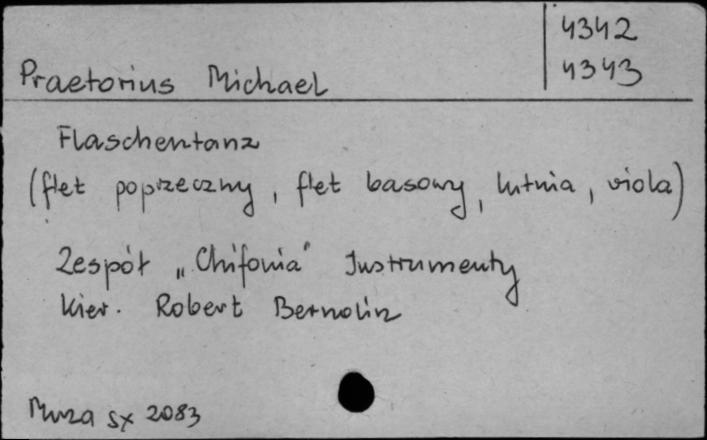 4342
4343
Praetorius Michael
Flaschentanz
(flet poprzeczny, flet basowy, lutnia, viola)
Zespół „Chifonia" Instrumenty
kier. Robert Bernolin
Muza sx 2083